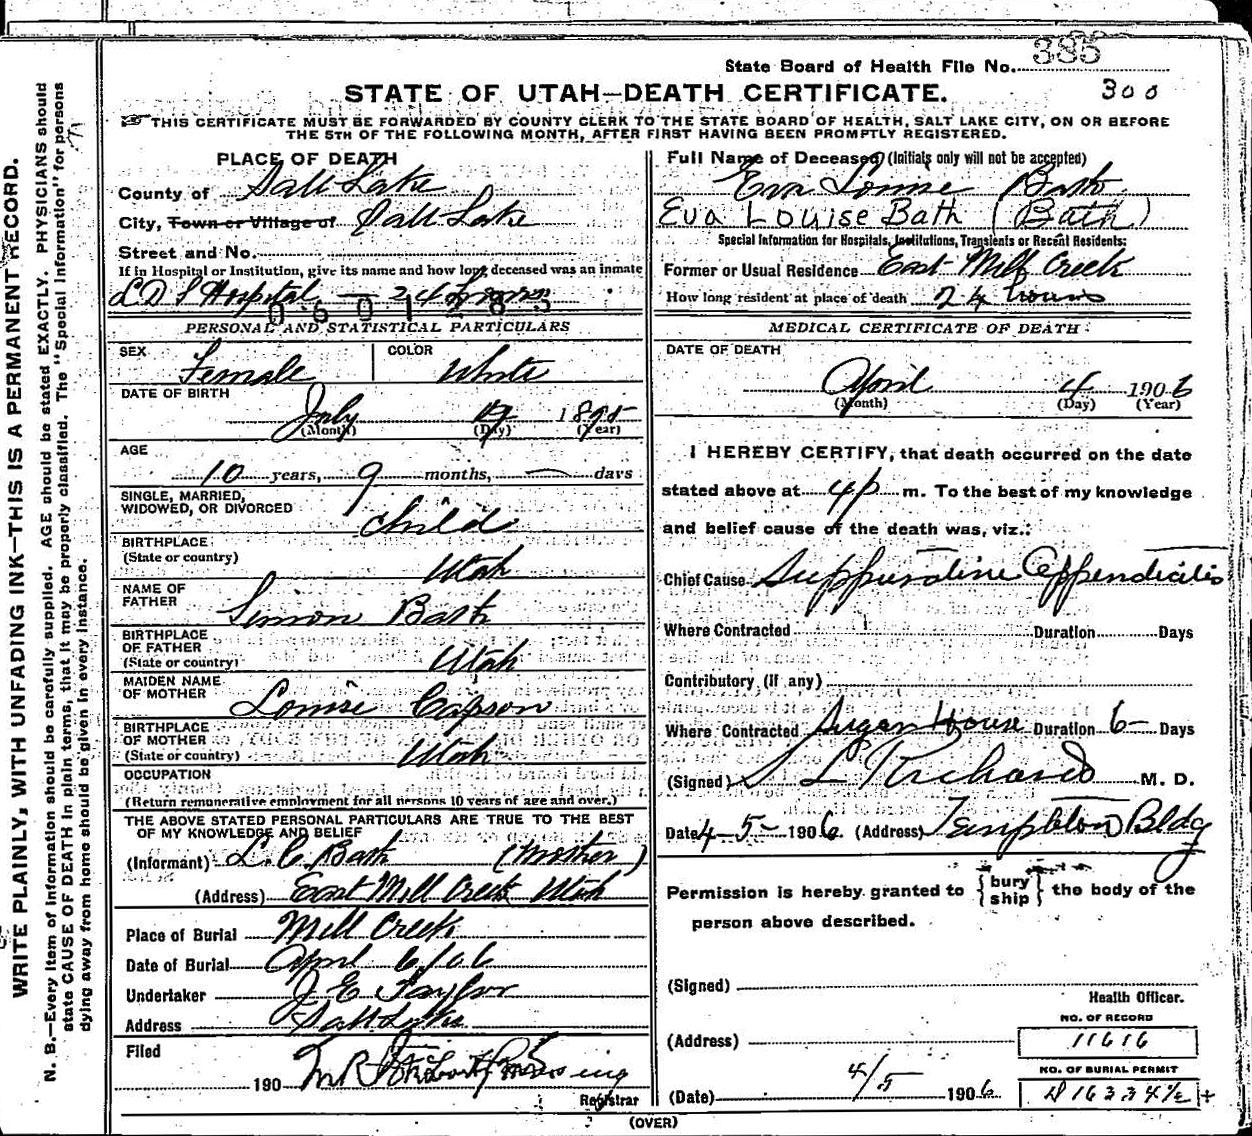 State Board of Health File No. 385
300
STATE OF UTAH—DEATH CERTIFICATE.
☞ THIS CERTIFICATE MUST BE FORWARDED BY COUNTY CLERK TO THE STATE BOARD OF HEALTH, SALT LAKE CITY, ON OR BEFORE
THE 5TH OF THE FOLLOWING MONTH, AFTER FIRST HAVING BEEN PROMPTLY REGISTERED.
WRITE PLAINLY, WITH UNFADING INK—THIS IS A PERMANENT RECORD.
N. B.—Every item of information should be carefully supplied. AGE should be stated EXACTLY. PHYSICIANS should
state CAUSE OF DEATH in plain terms, that it may be properly classified. The "Special Information" for persons
dying away from home should be given in every instance.
PLACE OF DEATH
County of Salt Lake
City, Town or Village of Salt Lake
Street and No.
If in Hospital or Institution, give its name and how long deceased was an inmate
L D S Hospital — 24 hours
PERSONAL AND STATISTICAL PARTICULARS
SEX Female
COLOR White
DATE OF BIRTH
July 1895
(Month) (Day) (Year)
AGE
10 years, 9 months, — days
SINGLE, MARRIED,
WIDOWED, OR DIVORCED Child
BIRTHPLACE
(State or country) Utah
NAME OF
FATHER Simon Bath
BIRTHPLACE
OF FATHER
(State or country) Utah
MAIDEN NAME
OF MOTHER Louise Capson
BIRTHPLACE
OF MOTHER
(State or country) Utah
OCCUPATION
(Return remunerative employment for all persons 10 years of age and over.)
THE ABOVE STATED PERSONAL PARTICULARS ARE TRUE TO THE BEST
OF MY KNOWLEDGE AND BELIEF
(Informant) L. C. Bath (Mother)
(Address) East Mill Creek Utah
Place of Burial Mill Creek
Date of Burial April 6/06
Undertaker J E Taylor
Address Salt Lake
Filed
190
Registrar
Full Name of Deceased (Initials only will not be accepted)
Eva Louise Bath
Eva Louise Bath (Bath)
Special Information for Hospitals, Institutions, Transients or Recent Residents:
Former or Usual Residence East Mill Creek
How long resident at place of death 24 hours
MEDICAL CERTIFICATE OF DEATH
DATE OF DEATH
April 4 1906
(Month) (Day) (Year)
I HEREBY CERTIFY, that death occurred on the date
stated above at 4 p m. To the best of my knowledge
and belief cause of the death was, viz.:
Chief Cause Suppurative Appendicitis
Where Contracted Duration Days
Contributory (if any)
Where Contracted Sugar House Duration 6 Days
(Signed) S L Richards M. D.
Date 4-5- 1906. (Address) Templeton Bldg
Permission is hereby granted to {bury
ship} the body of the
person above described.
(Signed)
Health Officer.
NO. OF RECORD
(Address) 11616
NO. OF BURIAL PERMIT
(Date) 4/5 1906
(OVER)